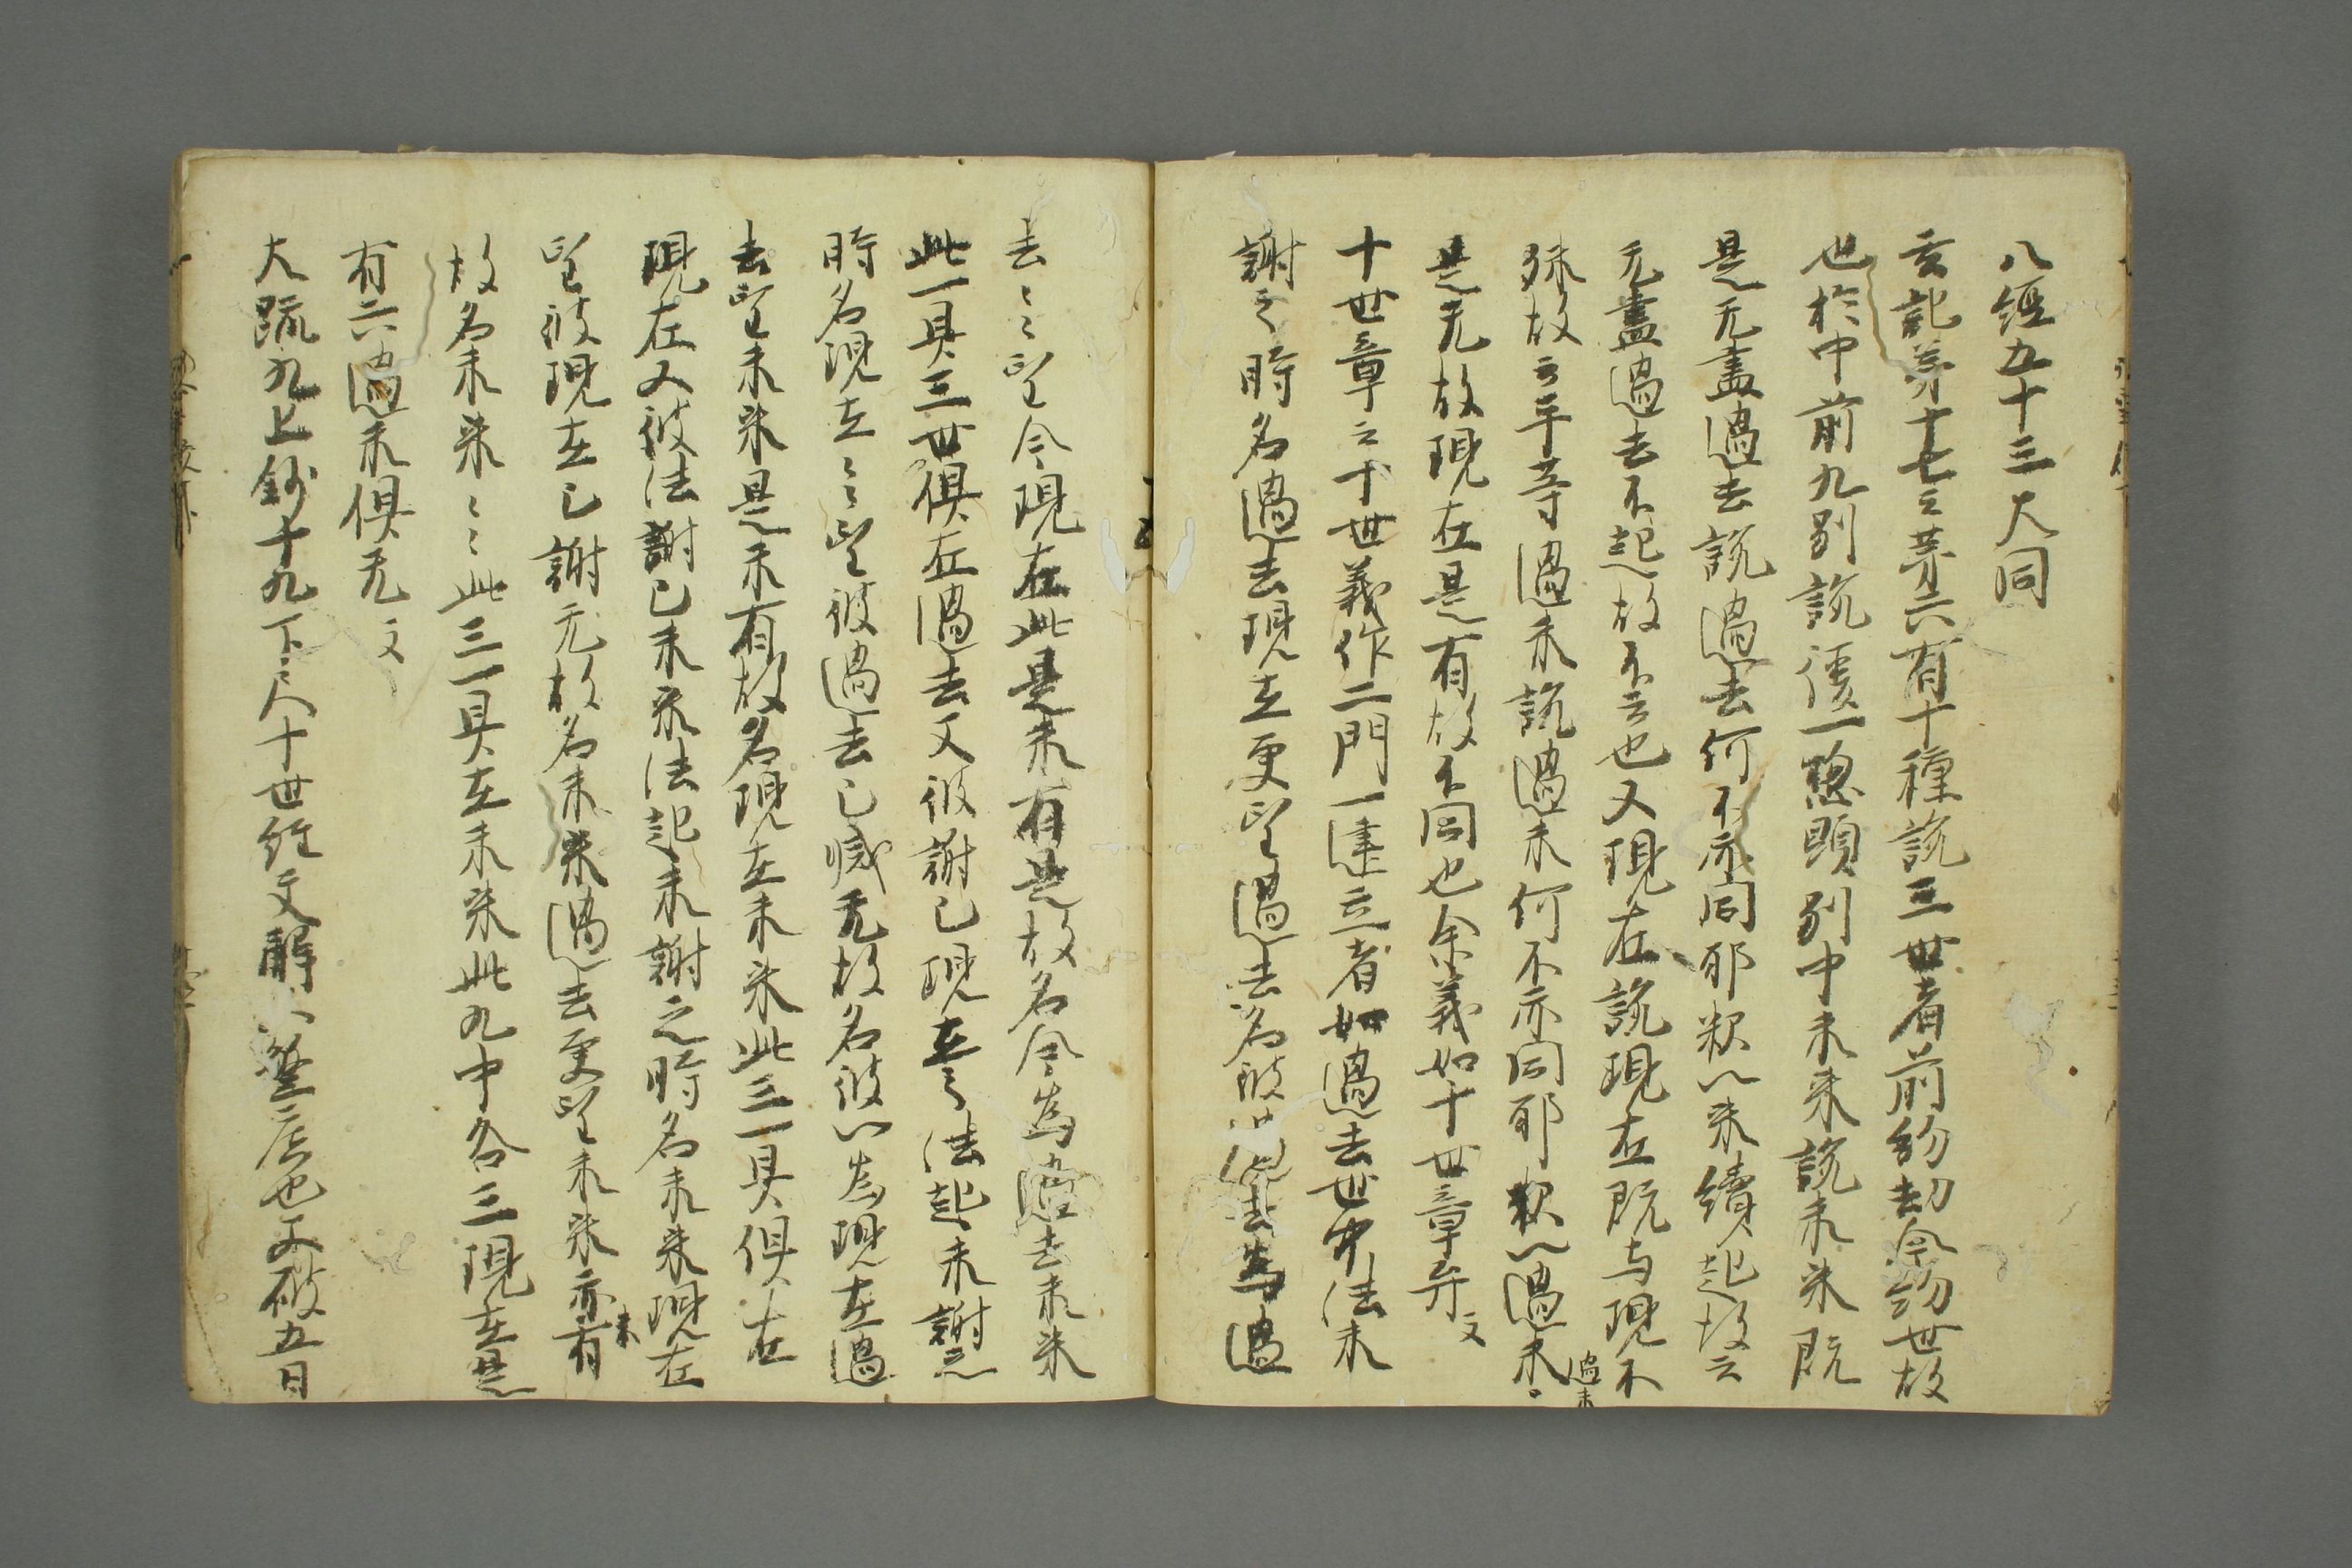 八経五十三大同
玄記第十七云第六有十種説三世者前約劫今約世故
也於中前九別説後一惣顕別中未来説未来既
是无盡過去説過去何不亦同耶釈以来續起故云
无盡過去不起故不云也又現在説現在既与現不
殊故云平等過未説過未何不亦同耶釈以過未〻
過未
是无故現在是有故不同也余義如十世章弁文
十世章云十世義作二門一建立者如過去世中法未
謝之時名過去現在更望過去名彼過去為過
去〻〻望今現在此是未有是故名今為過去未来
此一具三世倶在過去又彼謝已現在之法起未謝之
時名現在〻〻望彼過去已滅无故名彼以為現在過
去望未来是未有故名現在未来此三一具倶在
現在又彼法謝已未来法起未謝之時名未来現在
望彼現在已謝无故名未来過去更望未来亦未有
故名未来〻〻此三一具在未来此九中各三現在是
有六過未倶无文
大疏九上鈔十九下之人十世経文解以筌意也又破五日